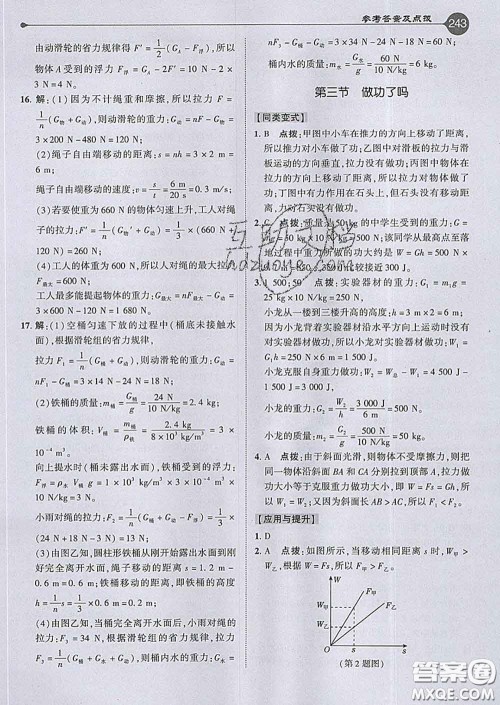 参考答案及点拨 243
由动滑轮的省力规律得 F′=1/2(G_A-F_浮)，所以
物体 A 受到的浮力 F_浮=G_A-2F′=10 N-2 N×
4=2 N。
16. 解:(1)因为不计绳重和摩擦,所以拉力 F=
1/n(G_物+G_动),则动滑轮的重力:G_动=nF-G_物=
3×200 N-480 N=120 N;
(2)绳子自由端移动的距离:s=nh=3×2 m=
6 m,
绳子自由端移动的速度:v=s/t=6 m/20 s=0.3 m/s;
(3)若要使重为660 N的物体匀速上升,工人对
绳子的拉力:F′=1/n(G′_物+G_动)=1/3×(660 N+
120 N)=260 N;
(4)工人的体重为600 N,所以工人对绳的最大拉
F_最大=600 N,
工人最多能提起物体的重力:G_最大=nF_最大-G_动=
3×600 N-120 N=1 680 N。
17. 解:(1)空桶匀速下放的过程中(桶底未接触水
面),根据滑轮组的省力规律,
拉力 F₁=1/n(G_桶+G_动),则动滑轮的重力:G_动=
nF₁-G_桶=3×12 N-24 N=12 N;
(2)铁桶的质量:m_桶=G_桶/g=24 N/10 N/kg=2.4 kg,
铁桶的体积:V_桶=m_桶/ρ_铁=2.4 kg/8×10³ kg/m³=3×
10⁻⁴ m³。
向上提水时(桶未露出水面),铁桶受到的浮力:
F_浮=ρ_水gV_排=ρ_水gV_桶=1.0×10³ kg/m³×
10 N/kg×3×10⁻⁴ m³=3 N,
小雨对绳子的拉力:F₂=1/3(G_桶+G_动-F_浮)=1/3×
(24 N+12 N-3 N)=11 N;
(3)由图乙知,圆柱形铁桶从开始露出水面到刚
好完全离开水面,绳子移动的距离 s=1.2 m-
0.6 m=0.6 m;此过程移动的距离,即铁桶的高
度:h=1/n s=1/3×0.6 m=0.2 m;
(4)由图乙知,当铁桶完全离开水面后,绳子自由
端的拉力 F₃=34 N,根据滑轮组的省力规律,拉力
F₃=1/3(G_水+G_桶+G_动),则桶内水的重力:G_水=
3F₃-G_桶-G_动=3×34 N-24 N-12 N=66 N,
桶内水的质量:m_水=G_水/g=66 N/10 N/kg=6.6 kg。
第三节 做功了吗
【同类变式】
1. B 点拨:甲图中小车在推力的方向上移动了距离,
所以推力对小车做了功;乙图中对滑板的拉力与滑
板运动的方向垂直,拉力没有做功;丙图中物体在
拉力的方向上移动了距离,所以拉力对物体做了
功;丁图中有力作用在石头上,但石头没有移动距
离,力对石头没有做功。
2. 点拨:质量是50 kg的中学生受到的重力:G=
50 kg×10 N/kg=500 N;该同学从最高点至
300 J
3. 1 500;50 点拨:实验器材的重力:G₁=m₁g=
25 kg×10 N/kg=250 N,
小龙从一楼到三楼升高的高度:h=3 m×2=6 m,
因为小龙背着实验器材沿水平方向上运动时没有
对实验器材做功,所以小龙对实验器材做的功:W₁=
G₁h=250 N×6 m=1 500 J。
小龙克服自身重力做的功:W₂=W_总-W₁=
4 500 J-1 500 J=3 000 J,
小龙的重力:G=W₂/h=3 000 J/6 m=500 N,
小龙的质量:m=G/g=500 N/10 N/kg=50 kg。
4. A 点拨:由于斜面光滑,物体不受摩擦力,则把
同一物体沿斜面 BA 和 CA 分别拉到顶点 A,拉力
做功大小等于克服重力做功大小,即 W=Fs=Gh,所
以 W₁=W₂;又因为 s₁>s₂,所以 F₁<F₂。
【应用与提升】
1. D
2. A 点拨:如图所示,当移动距离均为 s 时,W_甲>
W_乙,根据 W=Fs,所以 F_甲>F_乙。
W
F_甲
W_甲
F_乙
W_乙
O
s
s
(第2题图)
答案圈
MXQE.COM